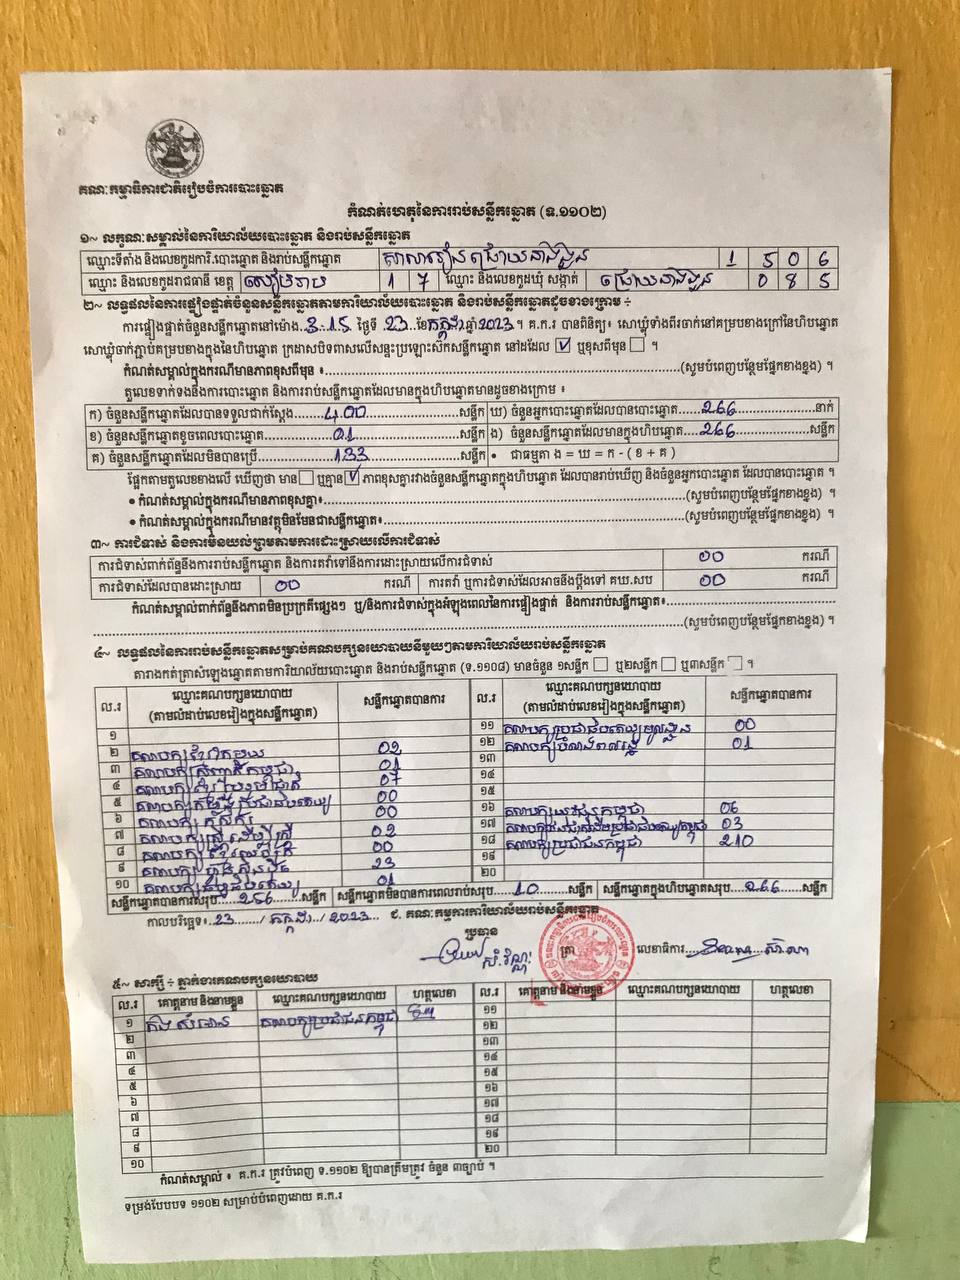 គណៈកម្មាធិការជាតិរៀបចំការបោះឆ្នោត
កំណត់ហេតុនៃការរាប់សន្លឹកឆ្នោត (ទ.១១០២)
១~ លក្ខណៈសម្គាល់នៃការិយាល័យបោះឆ្នោត និងរាប់សន្លឹកឆ្នោត
ឈ្មោះទីតាំង និងលេខកូដការិ.បោះឆ្នោត និងរាប់សន្លឹកឆ្នោត សាលារៀន ជ្រោយនាងងួន 1 5 0 6
ឈ្មោះ និងលេខកូដរាជធានី ខេត្ត សៀមរាប 1 7 ឈ្មោះ និងលេខកូដឃុំ សង្កាត់ ជ្រោយនាងងួន 0 8 5
២~ លទ្ធផលនៃការផ្ទៀងផ្ទាត់ចំនួនសន្លឹកឆ្នោតតាមការិយាល័យបោះឆ្នោត និងរាប់សន្លឹកឆ្នោតដូចខាងក្រោម ÷
ការផ្ទៀងផ្ទាត់ចំនួនសន្លឹកឆ្នោតនៅម៉ោង 3.15 ថ្ងៃទី 23 ខែកក្កដា ឆ្នាំ 2023 ។ គ.ក.រ បានពិនិត្យ៖ សោឃ្លុំទាំងពីរចាក់នៅគម្របខាងក្រៅនៃហិបឆ្នោត
សោឃ្លុំចាក់ភ្ជាប់គម្របខាងក្នុងនៃហិបឆ្នោត ក្រដាសបិទពាសលើសន្ទះប្រឡោះសឹកសន្លឹកឆ្នោត នៅដដែល ☑ ឬខុសពីមុន ☐ ។
កំណត់សម្គាល់ក្នុងករណីមានភាពខុសពីមុន ៖ (សូមបំពេញបន្ថែមផ្នែកខាងខ្នង) ។
តួលេខទាក់ទងនឹងការបោះឆ្នោត និងការរាប់សន្លឹកឆ្នោតដែលមានក្នុងហិបឆ្នោតមានដូចខាងក្រោម ៖
ក) ចំនួនសន្លឹកឆ្នោតដែលបានទទួលជាក់ស្តែង 400 សន្លឹក ឃ) ចំនួនអ្នកបោះឆ្នោតដែលបានបោះឆ្នោត 266 នាក់
ខ) ចំនួនសន្លឹកឆ្នោតខូចពេលបោះឆ្នោត 01 សន្លឹក ង) ចំនួនសន្លឹកឆ្នោតដែលមានក្នុងហិបឆ្នោត 266 សន្លឹក
គ) ចំនួនសន្លឹកឆ្នោតដែលមិនបានប្រើ 133 សន្លឹក • ជាធម្មតា ង = ឃ = ក - ( ខ + គ )
ផ្អែកតាមតួលេខខាងលើ ឃើញថា មាន ☐ ឬគ្មាន ☑ ភាពខុសគ្នារវាងចំនួនសន្លឹកឆ្នោតក្នុងហិបឆ្នោត ដែលបានរាប់ឃើញ និងចំនួនអ្នកបោះឆ្នោត ដែលបានបោះឆ្នោត ។
• កំណត់សម្គាល់ក្នុងករណីមានភាពខុសគ្នា៖ (សូមបំពេញបន្ថែមផ្នែកខាងខ្នង) ។
• កំណត់សម្គាល់ក្នុងករណីមានវត្ថុមិនមែនជាសន្លឹកឆ្នោត៖ (សូមបំពេញបន្ថែមផ្នែកខាងខ្នង) ។
៣~ ការជំទាស់ និងការមិនយល់ព្រមតាមការដោះស្រាយលើការជំទាស់
ការជំទាស់ពាក់ព័ន្ធនឹងការរាប់សន្លឹកឆ្នោត និងការតវ៉ាទៅនឹងការដោះស្រាយលើការជំទាស់ 00 ករណី
ការជំទាស់ដែលបានដោះស្រាយ 00 ករណី ការតវ៉ា ឬការជំទាស់ដែលអាចនឹងប្តឹងទៅ គឃ.សប 00 ករណី
កំណត់សម្គាល់ពាក់ព័ន្ធនឹងភាពមិនប្រក្រតីផ្សេងៗ ឬ/និងការជំទាស់ក្នុងអំឡុងពេលនៃការផ្ទៀងផ្ទាត់ និងការរាប់សន្លឹកឆ្នោត៖
(សូមបំពេញបន្ថែមផ្នែកខាងខ្នង) ។
៤~ លទ្ធផលនៃការរាប់សន្លឹកឆ្នោតសម្រាប់គណបក្សនយោបាយនីមួយៗតាមការិយាល័យរាប់សន្លឹកឆ្នោត
តារាងកត់ត្រាសំឡេងឆ្នោតតាមការិយាល័យបោះឆ្នោត និងរាប់សន្លឹកឆ្នោត (ទ.១១០៨) មានចំនួន ១សន្លឹក ☐ ឬ២សន្លឹក ☐ ឬ៣សន្លឹក ☐ ។
ល.រ ឈ្មោះគណបក្សនយោបាយ (តាមលំដាប់លេខរៀងក្នុងសន្លឹកឆ្នោត) សន្លឹកឆ្នោតបានការ ល.រ ឈ្មោះគណបក្សនយោបាយ (តាមលំដាប់លេខរៀងក្នុងសន្លឹកឆ្នោត) សន្លឹកឆ្នោតបានការ
១ ១១ គណបក្សប្រជាធិបតេយ្យមូលដ្ឋាន 00
២ គណបក្សខ្មែរតែមួយ 02 ១២ គណបក្សបំណងពលរដ្ឋ 01
៣ គណបក្សសញ្ជាតិកម្ពុជា 01 ១៣
៤ 07 ១៤
៥ គណបក្សកម្លាំងប្រជាធិបតេយ្យ 00 ១៥
៦ គណបក្សកសិករ 00 ១៦ គណបក្សយុវជនកម្ពុជា 06
៧ គណបក្សស្ត្រីដើម្បីស្ត្រី 02 ១៧ 03
៨ 00 ១៨ គណបក្សប្រជាជនកម្ពុជា 210
៩ គណបក្សហ្វ៊ុនស៊ិនប៉ិច 23 ១៩
១០ គណបក្សធម្មាធិបតេយ្យ 01 ២០
សន្លឹកឆ្នោតបានការសរុប 256 សន្លឹក សន្លឹកឆ្នោតមិនបានការពេលរាប់សរុប 10 សន្លឹក សន្លឹកឆ្នោតក្នុងហិបឆ្នោតសរុប 266 សន្លឹក
កាលបរិច្ឆេទ៖ 23 / កក្កដា / 2023 ជ. គណៈកម្មការការិយាល័យរាប់សន្លឹកឆ្នោត
ប្រធាន
ត្រា លេខាធិការ
៥~ សាក្សី ÷ ភ្នាក់ងារគណបក្សនយោបាយ
ល.រ គោត្តនាម និងនាមខ្លួន ឈ្មោះគណបក្សនយោបាយ ហត្ថលេខា ល.រ គោត្តនាម និងនាមខ្លួន ឈ្មោះគណបក្សនយោបាយ ហត្ថលេខា
១ គណបក្សប្រជាជនកម្ពុជា ១១
២ ១២
៣ ១៣
៤ ១៤
៥ ១៥
៦ ១៦
៧ ១៧
៨ ១៨
៩ ១៩
១០ ២០
កំណត់សម្គាល់ ៖ គ.ក.រ ត្រូវបំពេញ ទ.១១០២ ឱ្យបានត្រឹមត្រូវ ចំនួន ៣ច្បាប់ ។
ទម្រង់បែបបទ ១១០២ សម្រាប់បំពេញដោយ គ.ក.រ